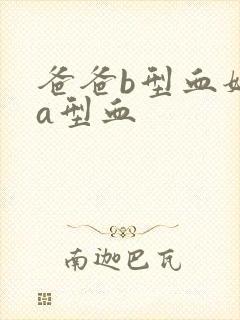 爸爸b型血
a型血
南迦巴瓦